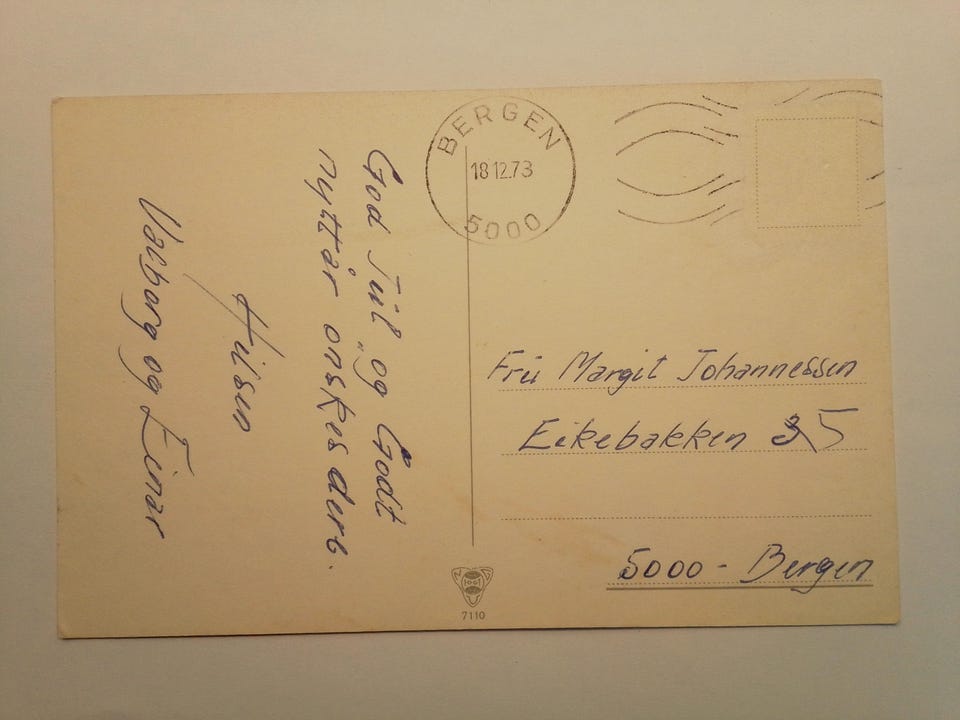 God Jul og Godt
nyttår onskes dere.
Hilsen
Valborg og Einar
BERGEN
18 12.73
5000
Frū Margit Johannessen
Eikebakken 35
5000 - Bergen
7110